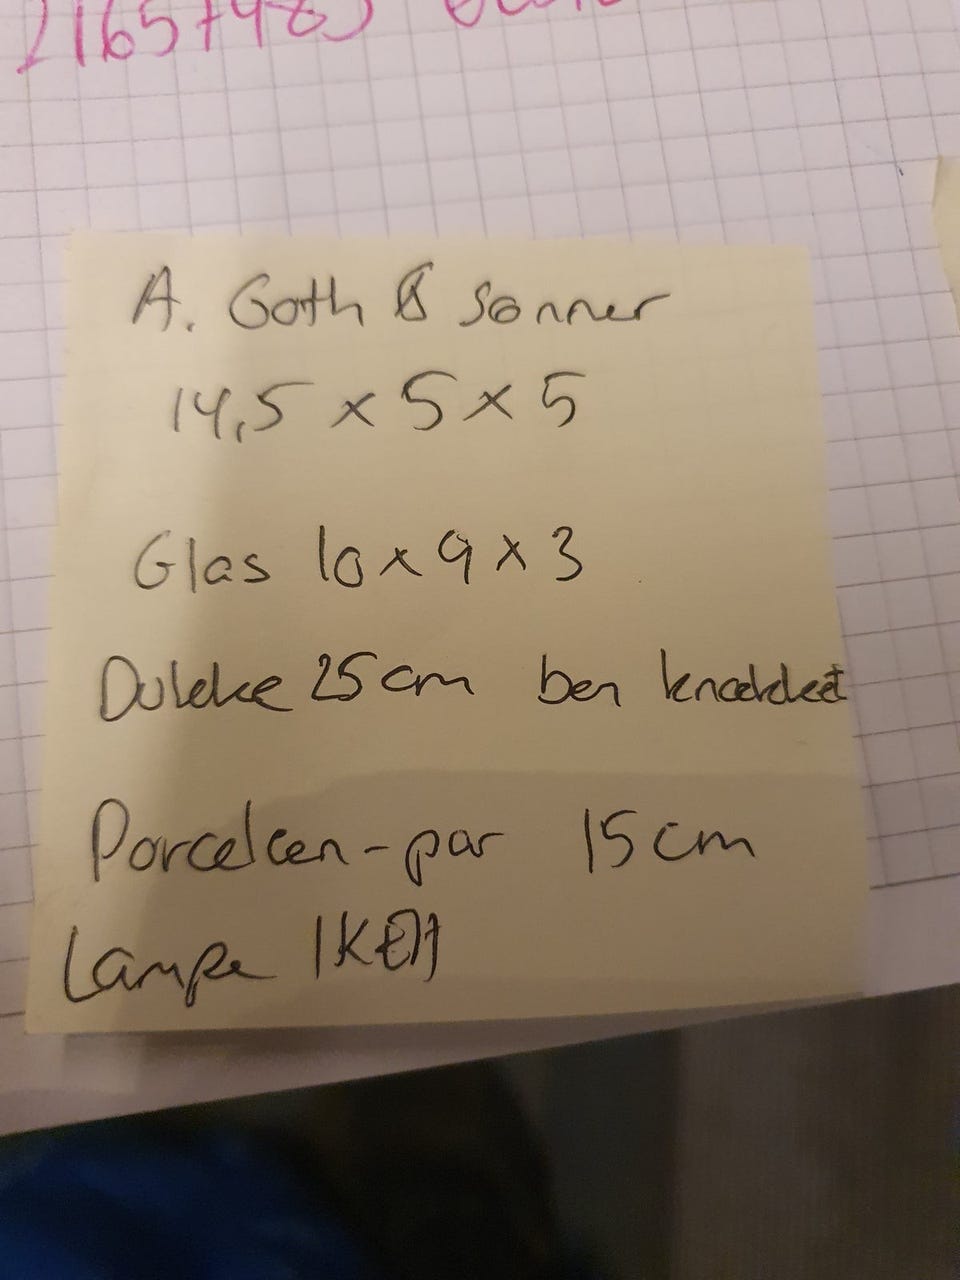 21657485
A. Goth & Sønner
14,5 x 5 x 5
Glas 10 x 9 x 3
Dukke 25 cm ben knækket
Porcelæn-par 15 cm
Lampe IKEA